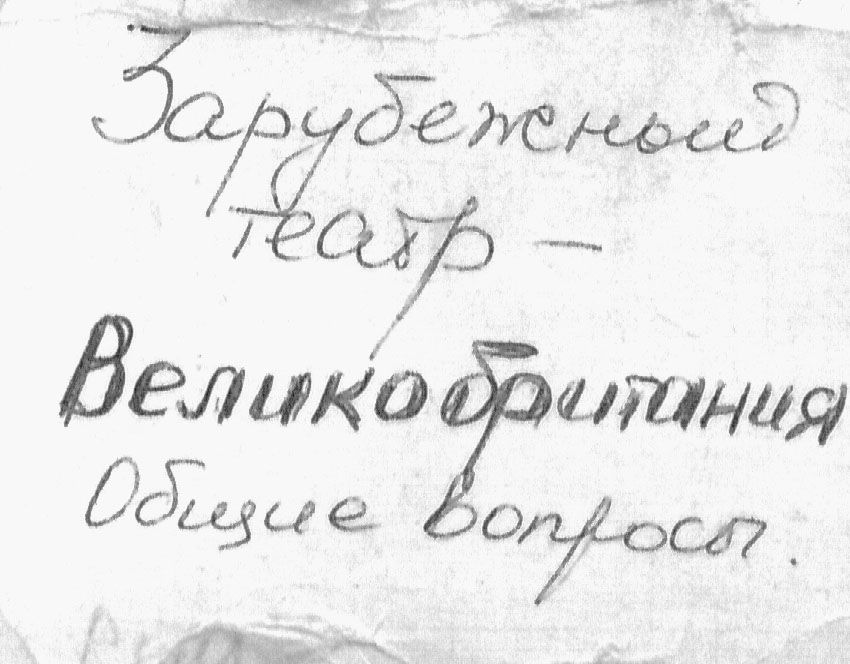 Зарубежный
театр –
Великобритания
Общие вопросы.